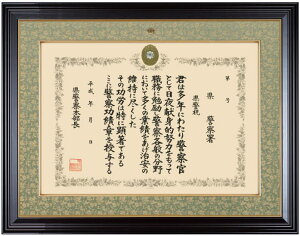 第 号
県 警察署
県警視
君は多年にわたり警察官
として日夜献身的努力をもって
職務に勉励し警察各般の分野
において多くの業績をあげ治安の
維持に尽くした
その功労は特に顕著である
ここに警察功績章を授与する
平成 年 月 日
県警察本部長